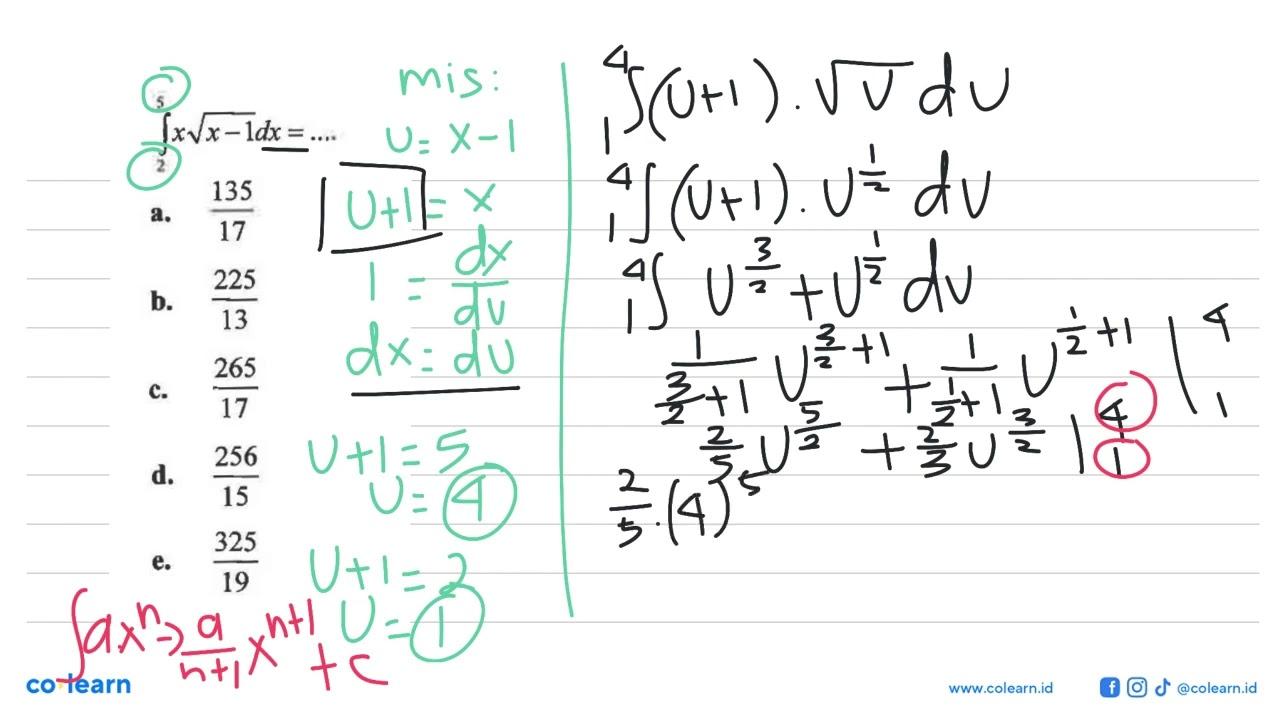 5
∫ x√(x−1) dx = ....
2
a. 135/17
b. 225/13
c. 265/17
d. 256/15
e. 325/19
∫axⁿ → a/(n+1) xⁿ⁺¹ + c
mis:
U = x−1
U+1 = x
1 = dx/dU
dx = dU
U+1 = 5
U = 4
U+1 = 2
U = 1
4
∫ (U+1) . √U dU
1
4
∫ (U+1) . U^(1/2) dU
1
4
∫ U^(3/2) + U^(1/2) dU
1
1/(3/2+1) U^(3/2+1) + 1/(1/2+1) U^(1/2+1) | 4 1
2/5 U^(5/2) + 2/3 U^(3/2) | 4 1
2/5 . (4)^5
co learn
www.colearn.id
@colearn.id